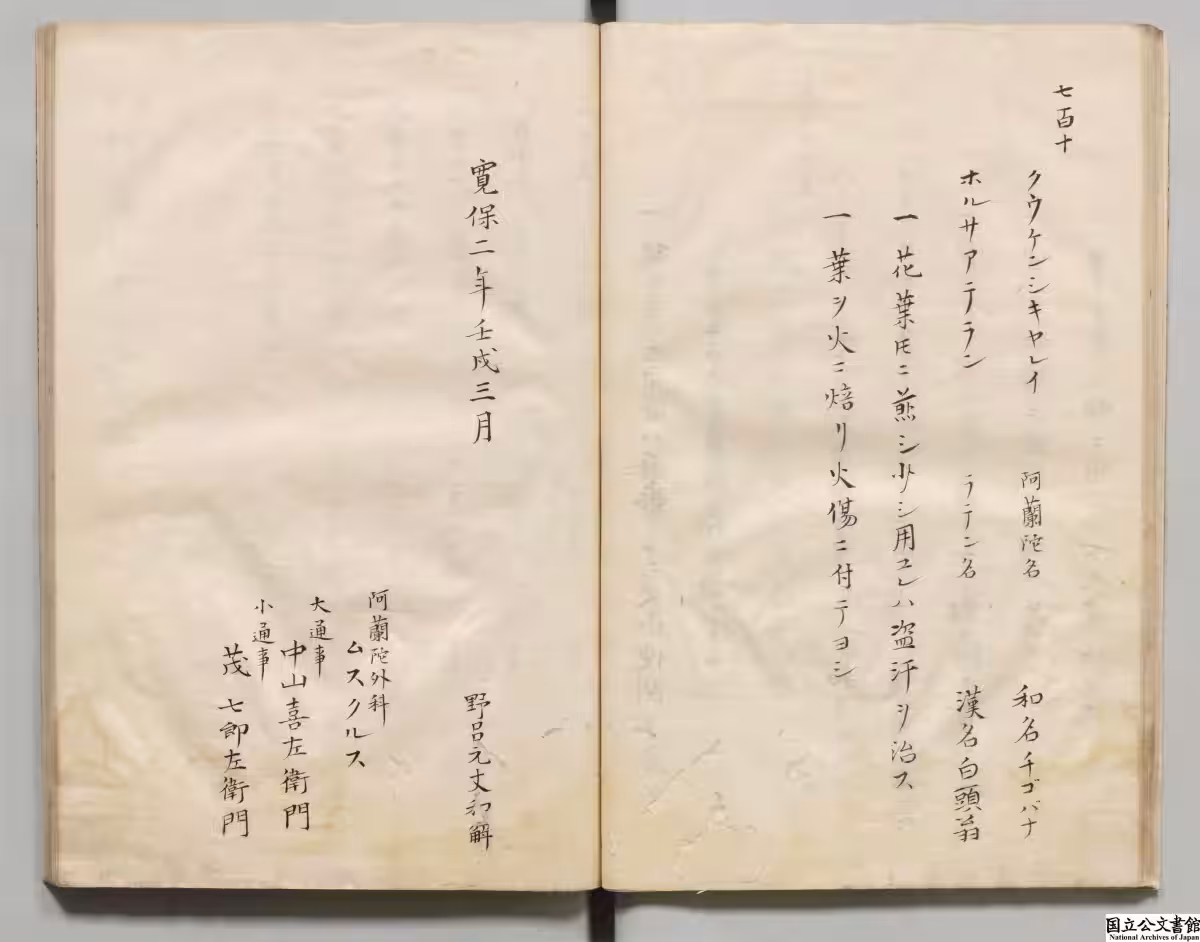 七百十
クウケンシキヤレイ 阿蘭陀名 和名チゴバナ
ホルサアテラン ラテン名 漢名白頭翁
一 花葉㆑ニ煎シ少シ用ユレハ盗汗ヲ治ス
一 葉ヲ火ニ焙リ火傷ニ付テヨシ
寛保二年壬戌三月
野呂元丈和解
阿蘭陀外科
ムスクルス
大通事
中山喜左衛門
小通事
茂七郎左衛門
国立公文書館
National Archives of Japan